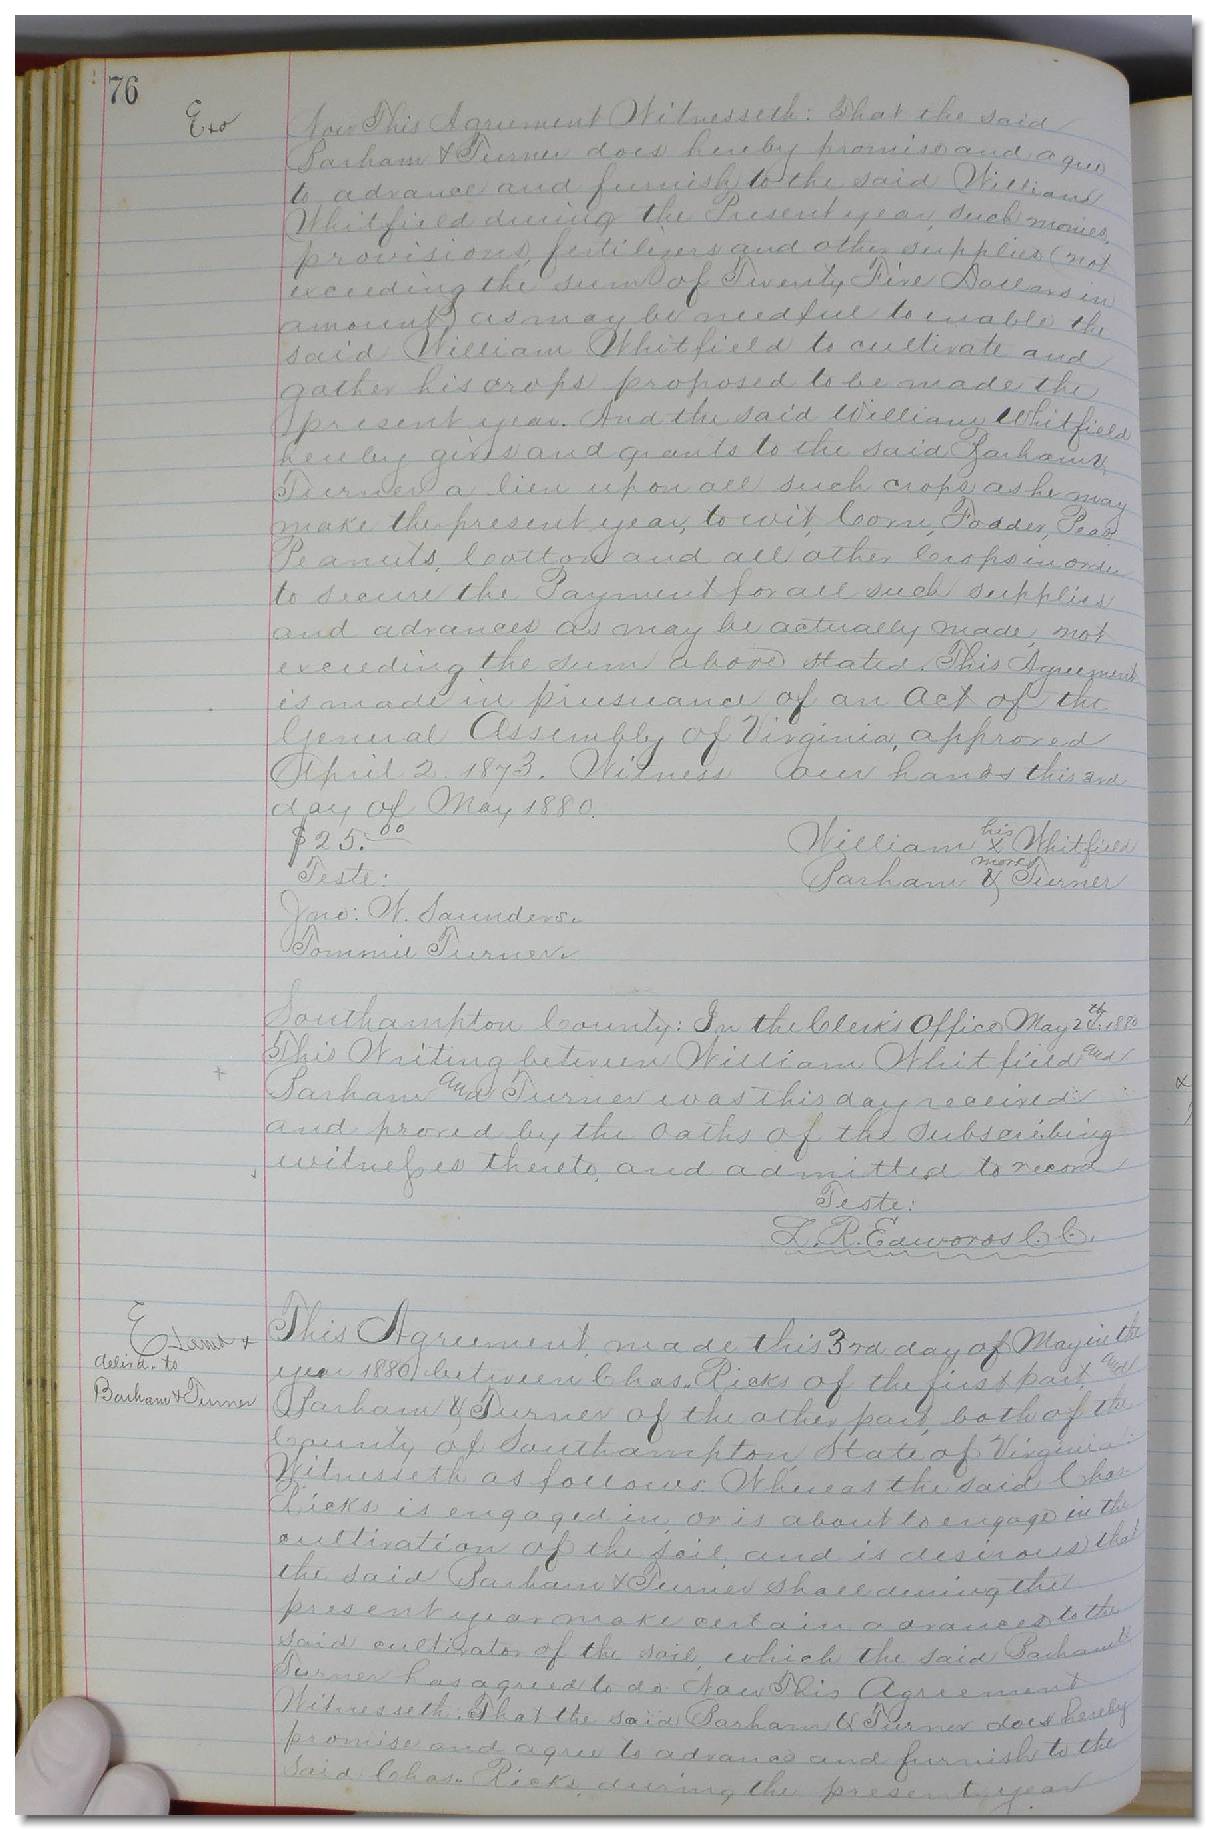 76
Exo
Now This Agreement Witnesseth: That the said
Parham & Turner does hereby promise and agree
to advance and furnish to the said William
Whitfield during the Present year, such monies,
provisions, fertilizers and other supplies (not
exceeding the sum of Twenty Five Dollars in
amount) as may be needful to enable the
said William Whitfield to cultivate and
gather his crops proposed to be made the
present year. And the said William Whitfield
hereby gives and grants to the said Parham &
Turner a lien upon all such crops as he may
make the present year, to wit, Corn, Fodder, Peas,
Peanuts, Cotton and all other Crops in order
to secure the Payment for all such supplies
and advances as may be actually made, not
exceeding the sum above stated. This Agreement
is made in pursuance of an Act of the
General Assembly of Virginia, approved
April 2. 1873. Witness our hands this 3rd
day of May 1880.
$25.00
William his x mark Whitfield
Teste:
Parham & Turner
Jno: W. Saunders.
Tommie Turner.
Southampton County: In the Clerk's Office May 1880
This Writing between William Whitfield and
Parham and Turner was this day received
and proved by the oaths of the subscribing
witnesses thereto, and admitted to record
Teste:
L. R. Edwards C. C.
delivd. to
Parham & Turner
This Agreement, made this 3rd day of May in the
year 1880, between Chas. Ricks of the first part and
Parham & Turner of the other part, both of the
County of Southampton, State of Virginia
Witnesseth as follows: Whereas the said Chas
Ricks is engaged in, or is about to engage in the
cultivation of the soil, and is desirous that
the said Parham & Turner shall during the
present year make certain advances to the
said cultivator of the soil, which the said Parham &
Turner has agreed to do Now This Agreement
Witnesseth: That the said Parham & Turner does hereby
promise and agree to advance and furnish to the
Said Chas. Ricks, during the present year